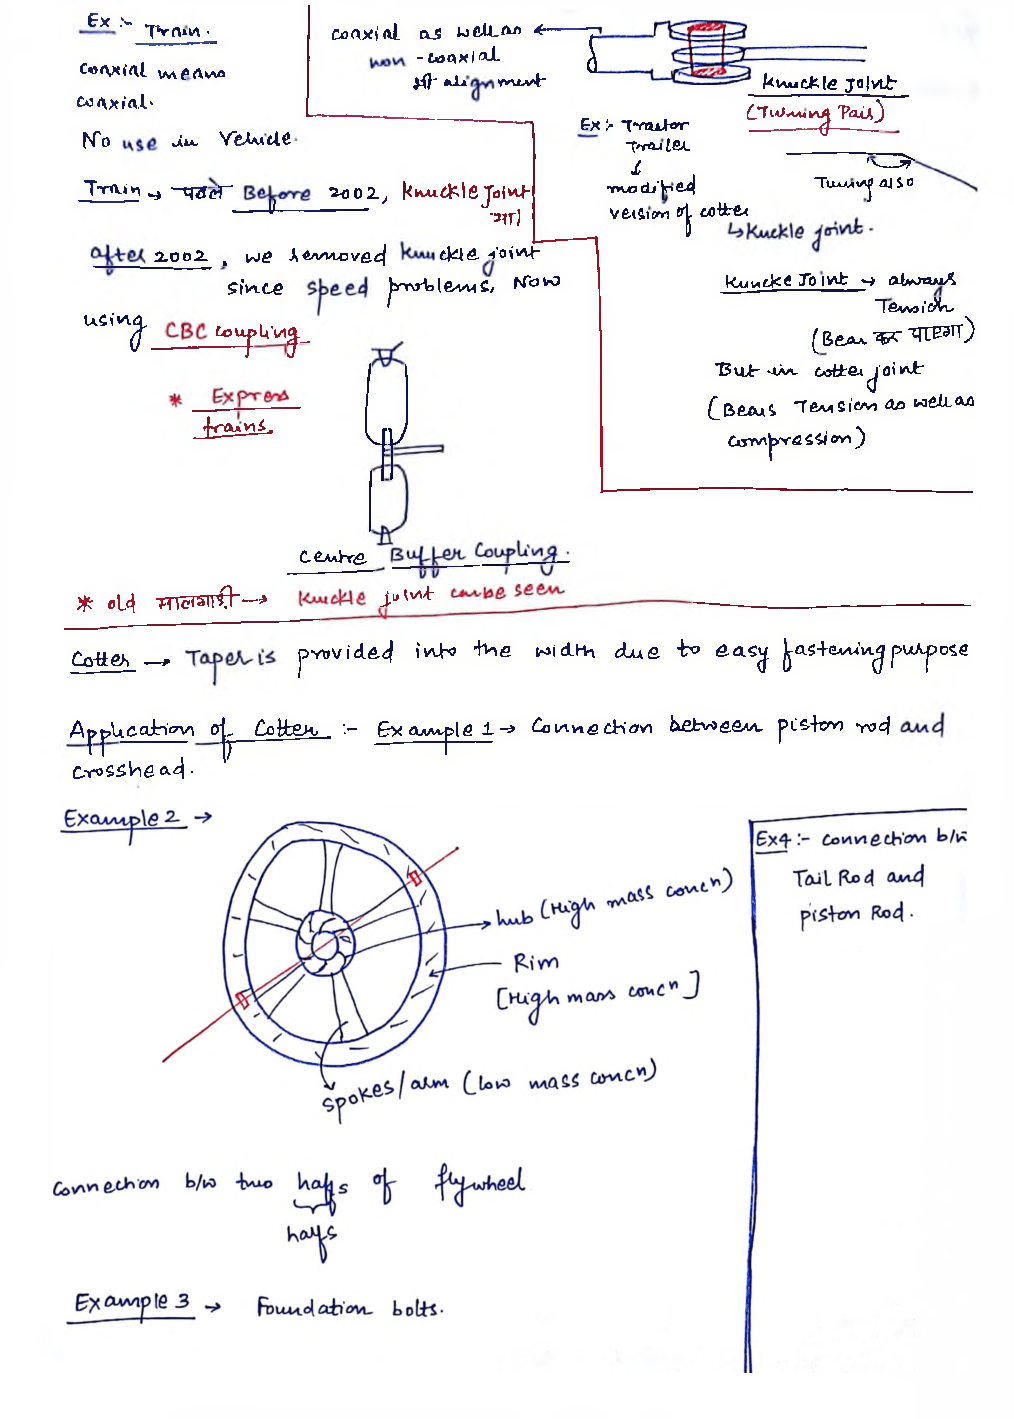 Ex :- Train.
coaxial means
coaxial.
No use in Vehicle.
Train → पहले Before 2002, Knuckle joint
था।
after 2002, we removed knuckle joint
since speed problems, Now
using CBC coupling
* Express
trains.
Centre Buffer Coupling.
* old मालगाडी → Knuckle joint can be seen
coaxial as well as
non-coaxial
भी alignment
Knuckle Joint
(Turning Pair)
Ex :- Tractor
Trailer
↓
modified
version of cotter
↳ Kuckle joint.
Turing also
Kuncke Joint → always
Tension
(Bear कर पाएगा)
But in cotter joint
(Bears Tension as well as
compression)
Cotter → Taper is provided into the width due to easy fastening purpose
Application of Cotter :- Example 1 → Connection between piston rod and
crosshead.
Example 2 →
hub (High mass concn)
Rim
[High mass concn]
spokes/arm (low mass concn)
Connection b/w two halfs of flywheel
halfs
Example 3 → Foundation bolts.
Ex4 :- connection b/w
Tail Rod and
piston Rod.